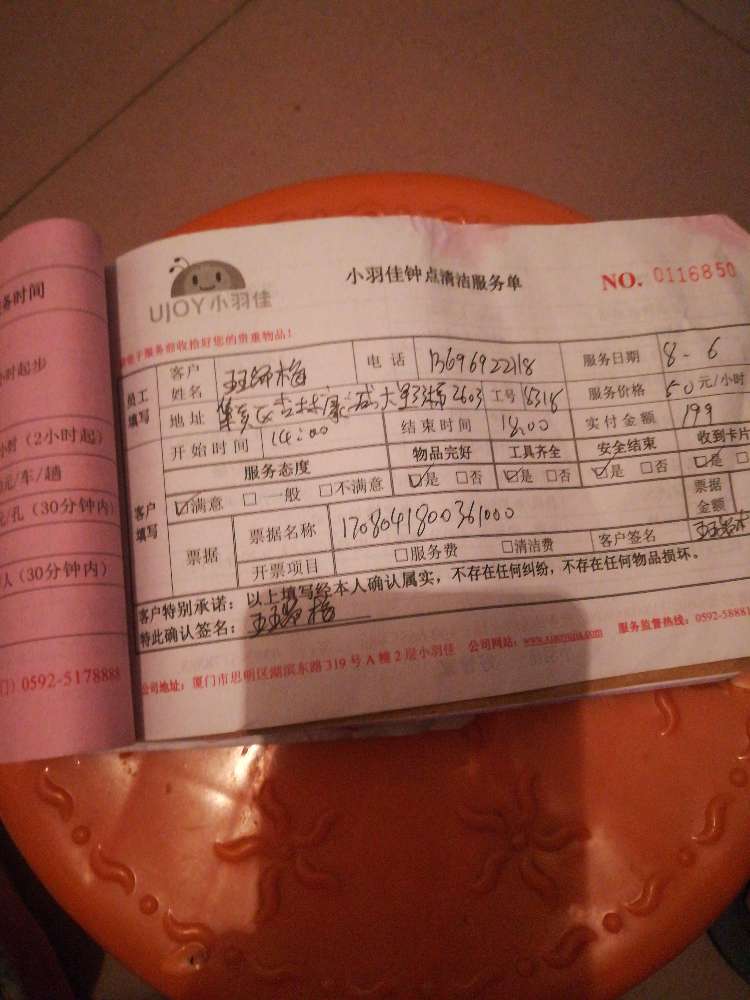 务时间
小时起步
小时（2小时起）
元/车/趟
元/孔（30分钟内）
人（30分钟内）
门）0592-5178888
UJOY小羽佳
小羽佳钟点清洁服务单
NO. 0116850
服务前收拾好您的贵重物品！
员工填写
客户姓名
电话 13696922118
服务日期 8-6
地址
2603
工号 8318
服务价格 50元/小时
开始时间 14:00
结束时间 18:00
实付金额 199
客户填写
服务态度
物品完好 工具齐全 安全结束 收到卡片
☑满意 □一般 □不满意 ☑是 □否 ☑是 □否 ☑是 □否 ☑是
票据
票据名称 1708041800361000
票据金额
开票项目 □服务费 □清洁费 客户签名
客户特别承诺：以上填写经本人确认属实，不存在任何纠纷，不存在任何物品损坏。
特此确认签名：
公司地址：厦门市思明区湖滨东路319号A幢2层小羽佳 公司网站：www.xiaoyujia.com 服务监督热线：0592-58881